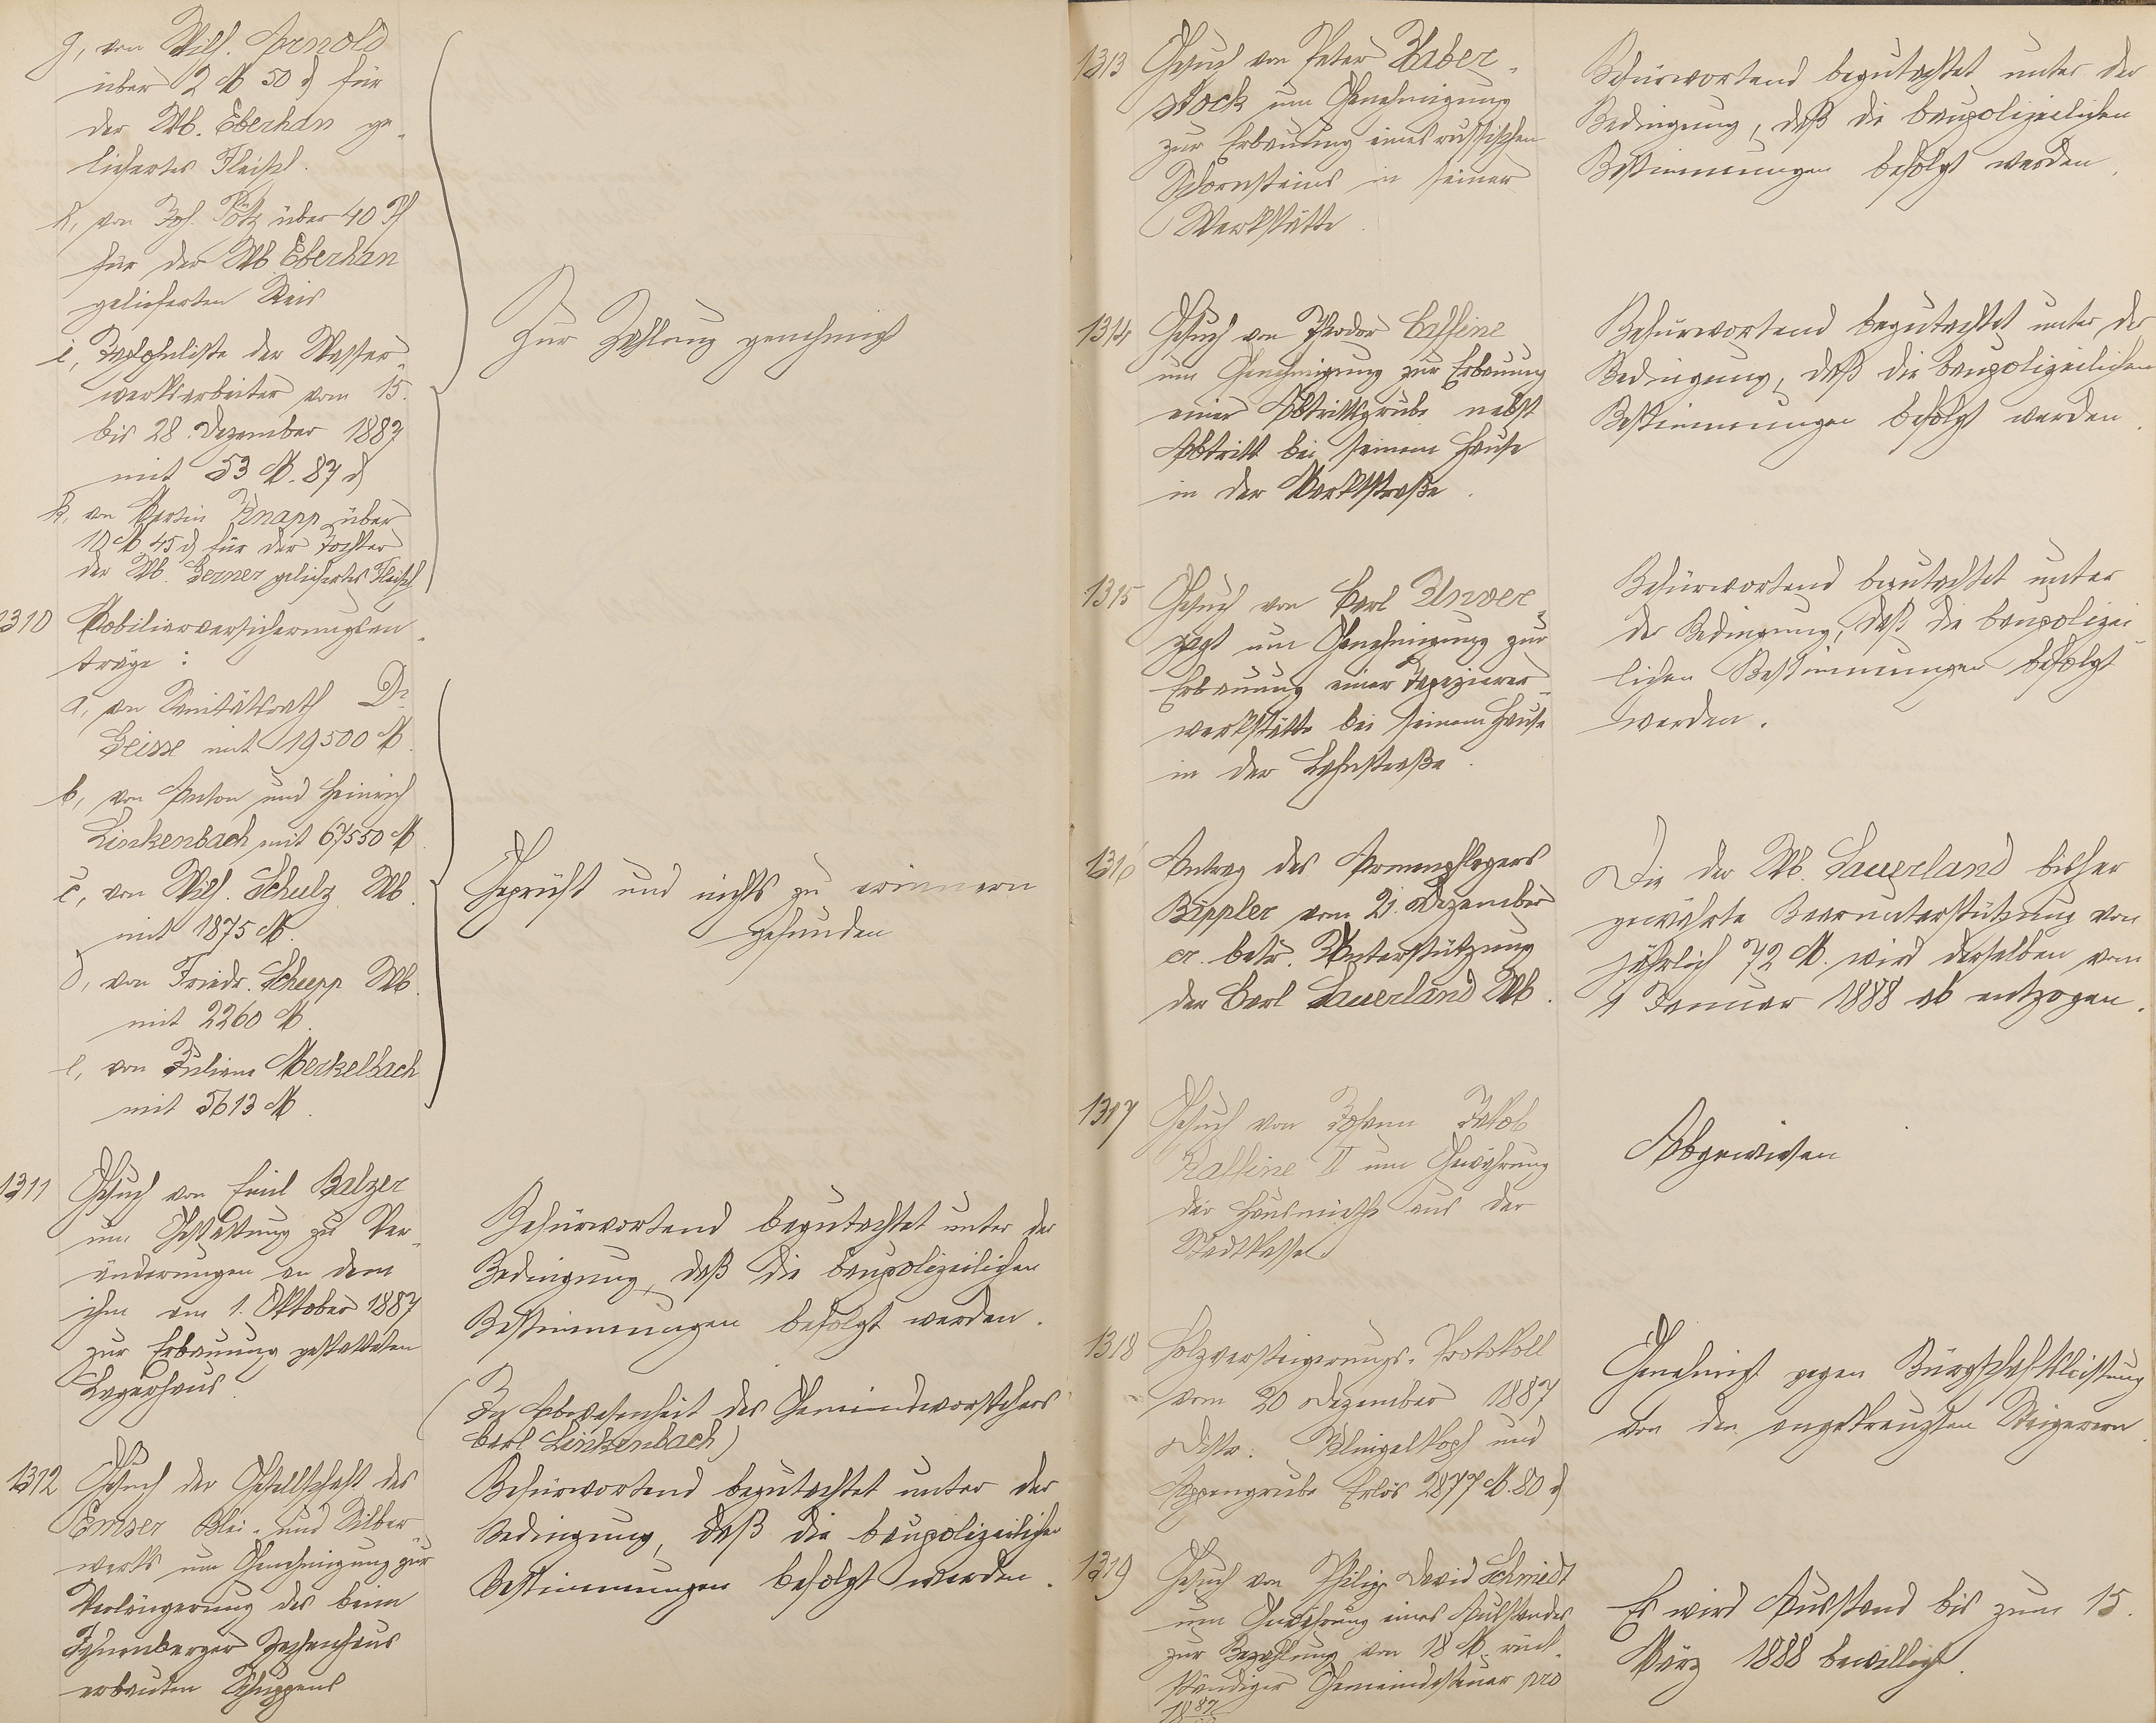 g, von Wilh. Arnold
über 2 M 50 d für
der Wb. Eberhan ge-
liefertes Fleisch.
h, von Joh. Pötz über 40 Pf
für der Wb Eberhan
gelieferten Reis
i, Taglohnliste der Wasser-
werksarbeiter vom 15.
bis 28. Dezember 1887
mit 53 M. 87 d
k, von Martin Knapp über
10 M 45 d für der Tochter
der Wb. Gerner geliefertes Fleisch
Zur Zahlung genehmigt
1310 Mobiliarversicherungsan-
träge:
a, von Sanitätsrath Dr
Geisse mit 19500 M.
b, von Anton und Heinrich
Linkenbach mit 67550 M.
c, von Wilh. Schulz Wb.
mit 1875 M.
d, von Friedr. Schupp Wb.
mit 2260 M.
e, von Juliane Merkelbach
mit 5613 M.
Geprüft und nichts zu erinnern
gefunden
1311 Gesuch von Emil Balzer
um Gestattung zu Ver-
änderungen an dem
ihm am 1. Oktober 1887
zur Erbauung gestatteten
Lagerhaus.
Befürwortend begutachtet unter der
Bedingung, daß die baupolizeilichen
Bestimmungen befolgt werden.
(In Abwesenheit des Gemeindevorstehers
Carl Linkenbach)
1312 Gesuch der Gesellschaft des
Emser Blei- und Silber-
werks um Genehmigung zur
Verlängerung des beim
Zechenhaus
erbauten Schuppens
Befürwortend begutachtet unter der
Bedingung, daß die baupolizeilichen
Bestimmungen befolgt werden.
1313 Gesuch von Peter Haber-
stock um Genehmigung
zur Erbauung eines russischen
Schornsteins in seiner
Werkstätte.
Befürwortend begutachtet unter der
Bedingung, daß die baupolizeilichen
Bestimmungen befolgt werden.
1314 Gesuch von Theodor Caffine
um Genehmigung zur Erbauung
einer Abtrittsgrube nebst
Abtritt bei seinem Hause
in der Marktstraße.
Befürwortend begutachtet unter der
Bedingung, daß die baupolizeilichen
Bestimmungen befolgt werden.
1315 Gesuch von Carl Unver-
zagt um Genehmigung zur
Erbauung einer Tapezierer-
werkstätte bei seinem Hause
in der Lahnstraße.
Befürwortend begutachtet unter
der Bedingung, daß die baupolizei-
lichen Bestimmungen befolgt
werden.
1316 Antrag des Armenpflegers
Bippler vom 21. Dezember
cr. betr. Unterstützung
der Carl Sauerland Wb.
Die der Wb. Sauerland bisher
gewährte Baarunterstützung von
jährlich 72 M. wird derselben vom
1 Januar 1888 ab entzogen.
1317 Gesuch von Johann Jakob
Kaffine II um Gewährung
der Hausmiethe aus der
Stadtkasse.
Abgewiesen
1318 Holzversteigerungs-Protokoll
vom 20 Dezember 1887
Distr. Klingelkopf und
Erlös 2877 M. 80 d
Genehmigt gegen Bürgschaftsleistung
von den angekreuzten Steigerern.
1319 Gesuch von Philipp David Schmidt
um Gewährung eines Ausstandes
zur Bezahlung von 18 M. rück-
ständiger Gemeindesteuer pro
Es wird Ausstand bis zum 15.
März 1888 bewilligt.